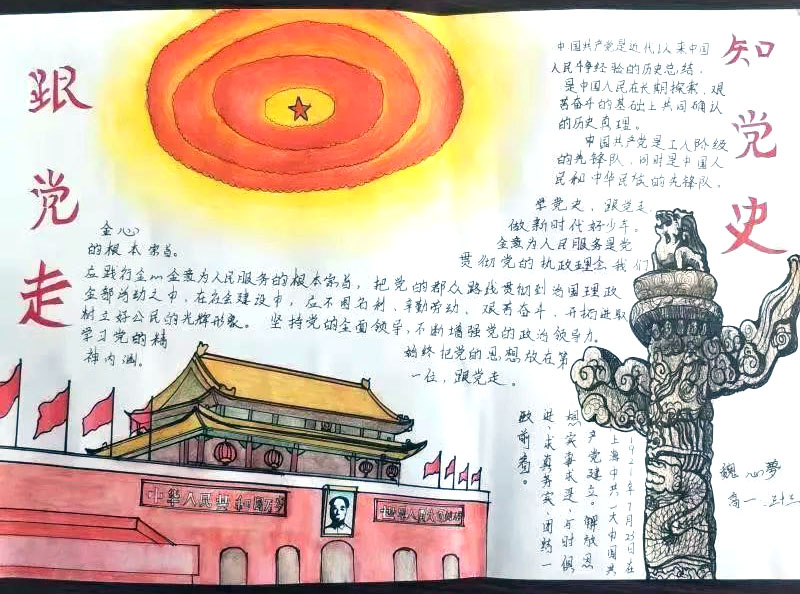 知党史
跟党走
中国共产党是近代以来中国
人民斗争经验的历史总结,
是中国人民在长期探索、艰
苦奋斗的基础上共同确认
的历史真理。
中国共产党是工人阶级
的先锋队,同时是中国人
民和中华民族的先锋队。
学党史,跟党走
做新时代好少年。
全意为人民服务是党
贯彻党的执政理念。我们
全心
的根本宗旨。
应践行全心全意为人民服务的根本宗旨,把党的群众路线贯彻到治国理政
全部活动之中,在社会建设中,应不图名利、辛勤劳动、艰苦奋斗、开拓进取
树立好公民的光辉形象。坚持党的全面领导,不断增强党的政治领导力。
学习党的精
神内涵。
始终把党的思想放在第
一位,跟党走。
1921年7月23日在
上海中共一大中国共
产党建立。解放思
想,实事求是,与时俱
进,求真务实,团结一
致前奋。
中华人民共和国万岁
世界人民大团结
魏心梦
高一